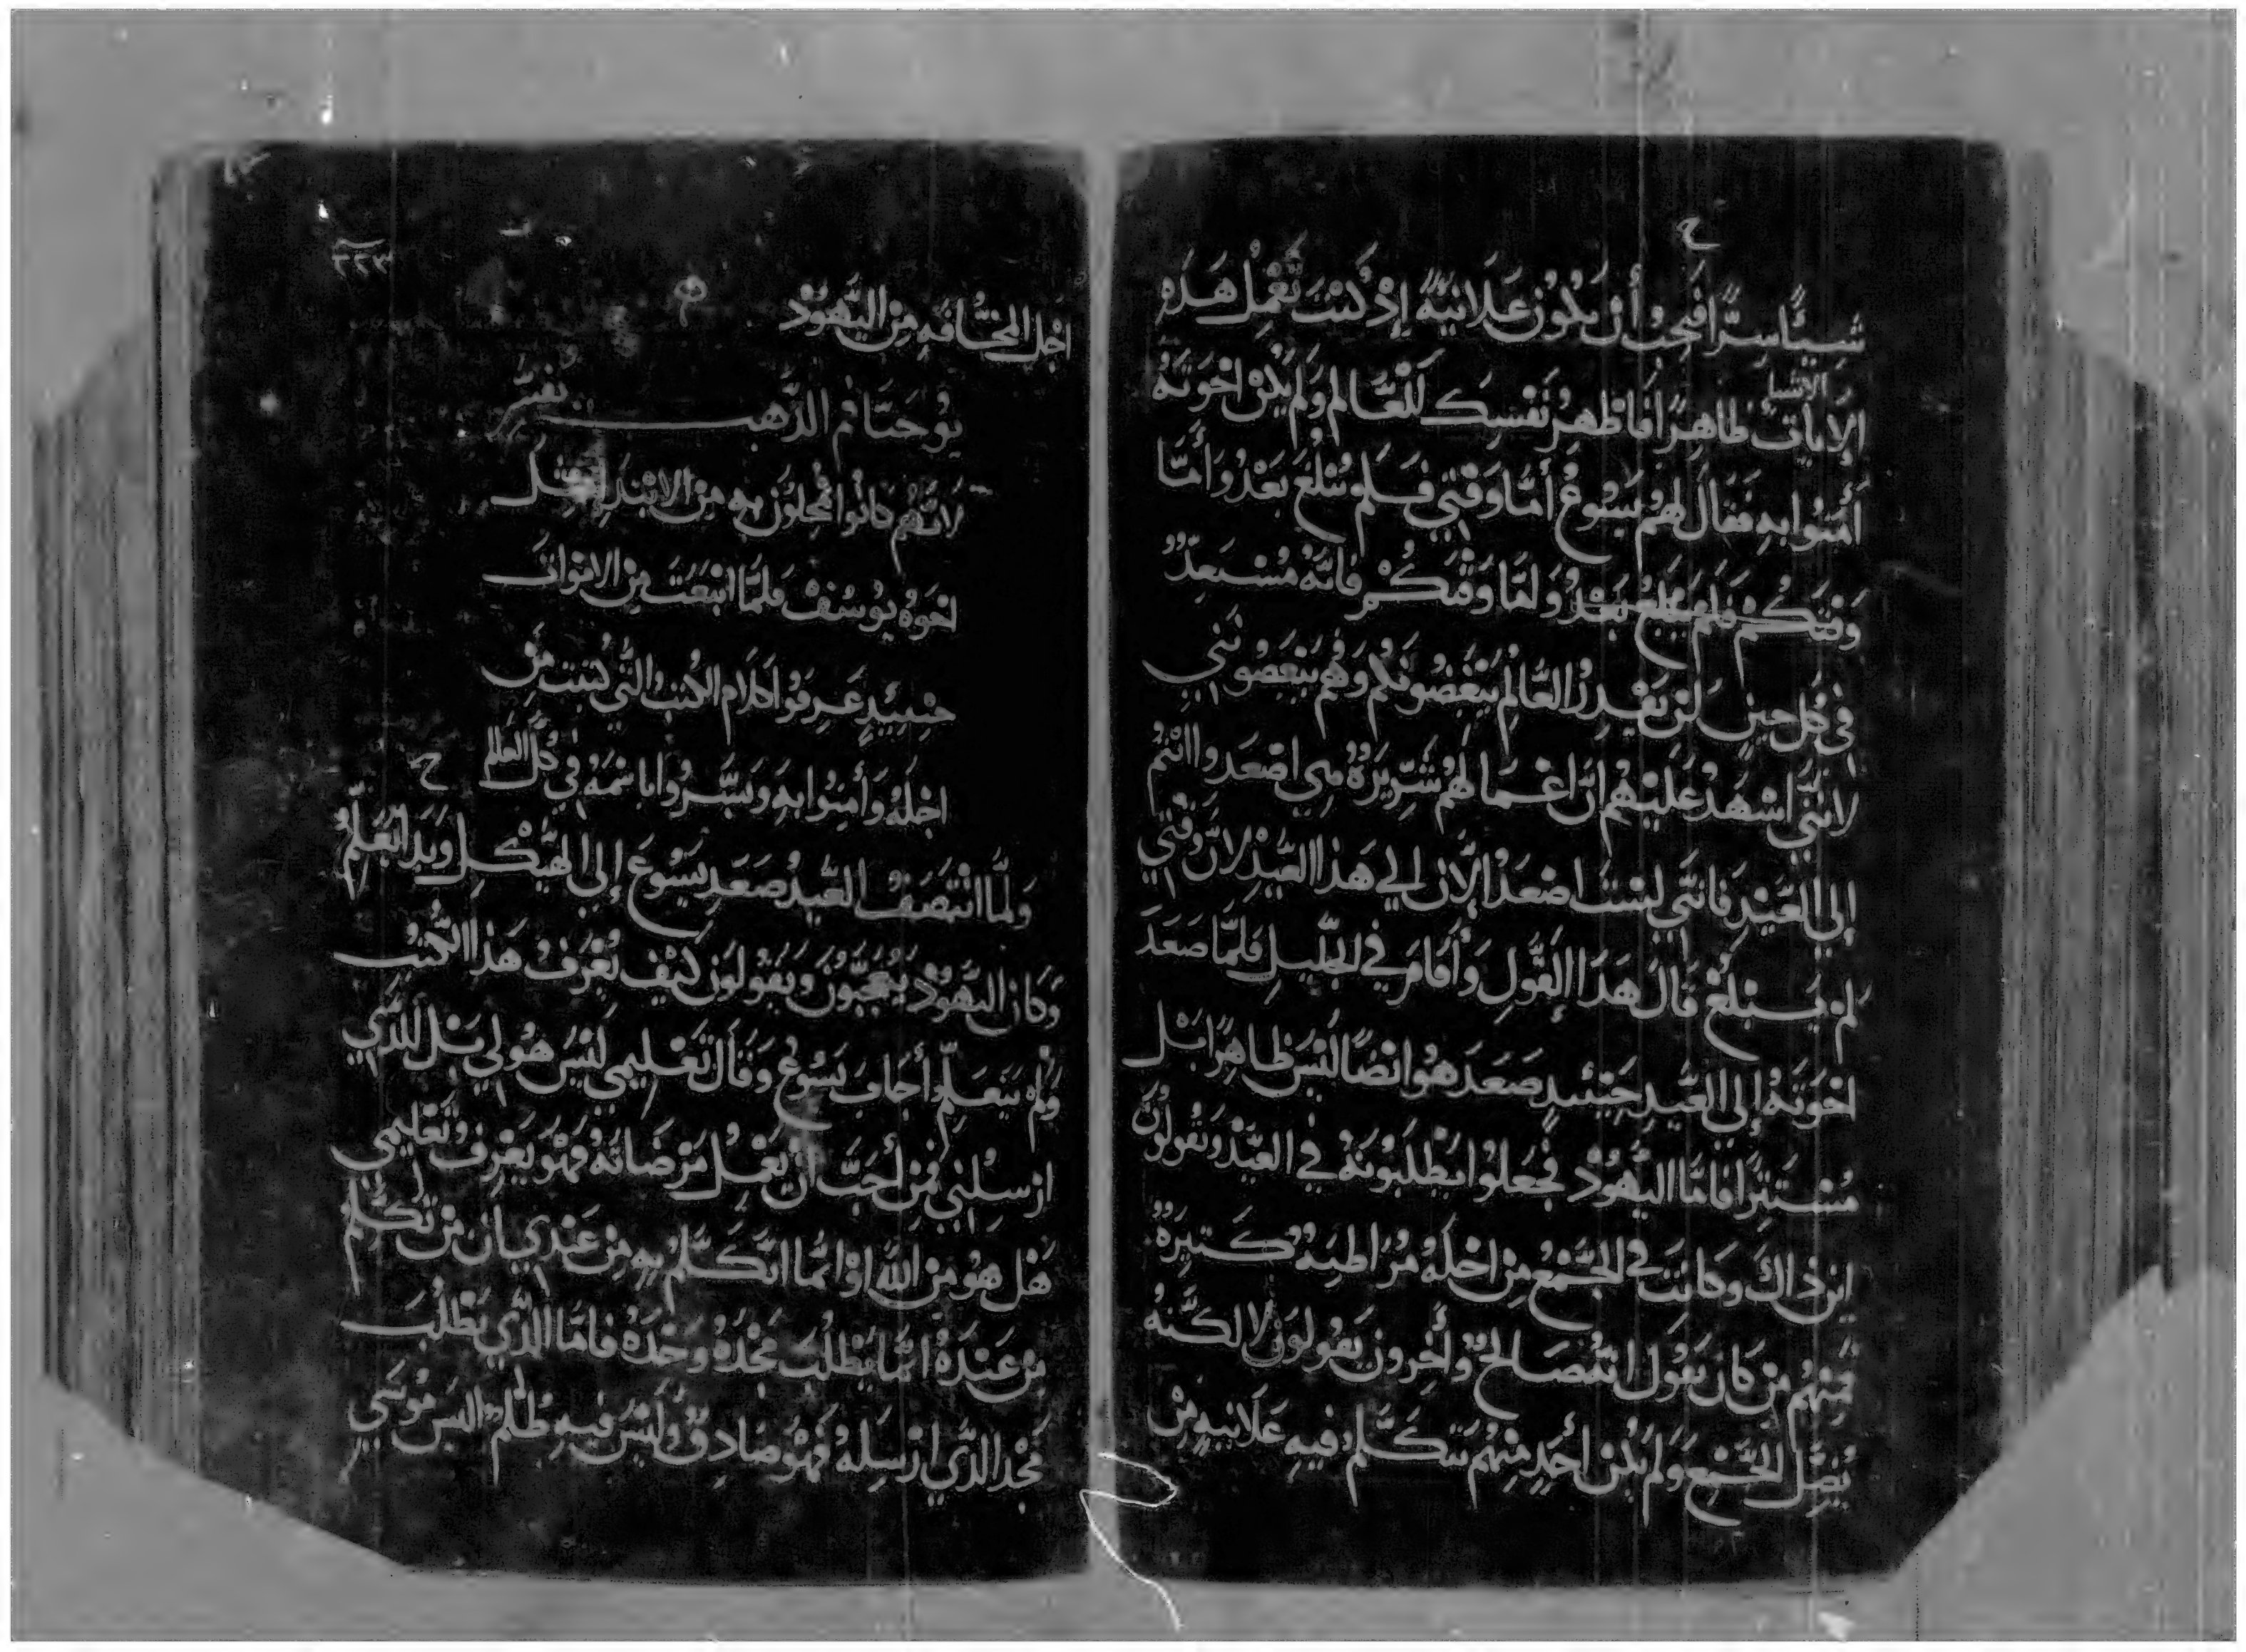 ح
شيئًا سرًا فيحب أن يكون علانيةً إذ كنت تعمل هذه
الايات ظاهرًا فاظهر نفسك للعالم ولم يكن اخوته
أمنوا به فقال لهم يسوع أما وقتي فلم يبلغ بعد وأما
وقتكم فلم يبلغ بعد ولما وقتكم فانه مستعد
في كل حين لن يقدر العالم يبغضونكم وهم يبغضونني
لانني اشهد عليهم ان اعمالهم شريرة هي اصعدوا انتم
إلي العيد فانني لست اصعد الان الي هذا العيد لان وقتي
لم يبلغ قال هذا القول وأقام في الجليل فلما صعد
اخوته إلي العيد حينئيد صعد هوا ايضًا ليس ظاهرًا بل
مستترًا فاما اليهود فجعلوا يطلبونه في العيد وتقولون
اين ذاك وكانت في الجمع من اجله مراطبة كتيرة
فمنهم من كان يقول انه صالح وأخرون يقولون لا لكنه
يضل الجمع ولم يكن أحد منهم يتكلم فيه علانيه من
٢٢٣
اجل المخافه من اليهود
يوحنا فم الدهب تفسر
لانهم كانوا فجلون به من الابتدا مثل
اخوه يوسف فلما انبعت من الاموات
حينيئيد عرفوا كلام الكتب التي كتبت من
اجله وأمنوا به وبشروا باسمه في كل العالم
ح
ولما انتصف العيد صعد يسوع إلي الهيكل وبدا يعلم
وكان اليهود يتعجبون ويقولون كيف يعرف هذا الكتب
ولم يتعلم أجاب يسوع وقال تعليمي ليس هو لي بل للدي
ارسلني فمن أحب أن يعمل مرضاته فهو يعرف تعليمي
هل هو من الله او انما اتكلم به من عندي ان من تكلم
من عنده انما يطلب مجده وحده فاما الدي يطلب
مجد الدي ارسله فهو صادق وليس فيه ظلم اليس موسي